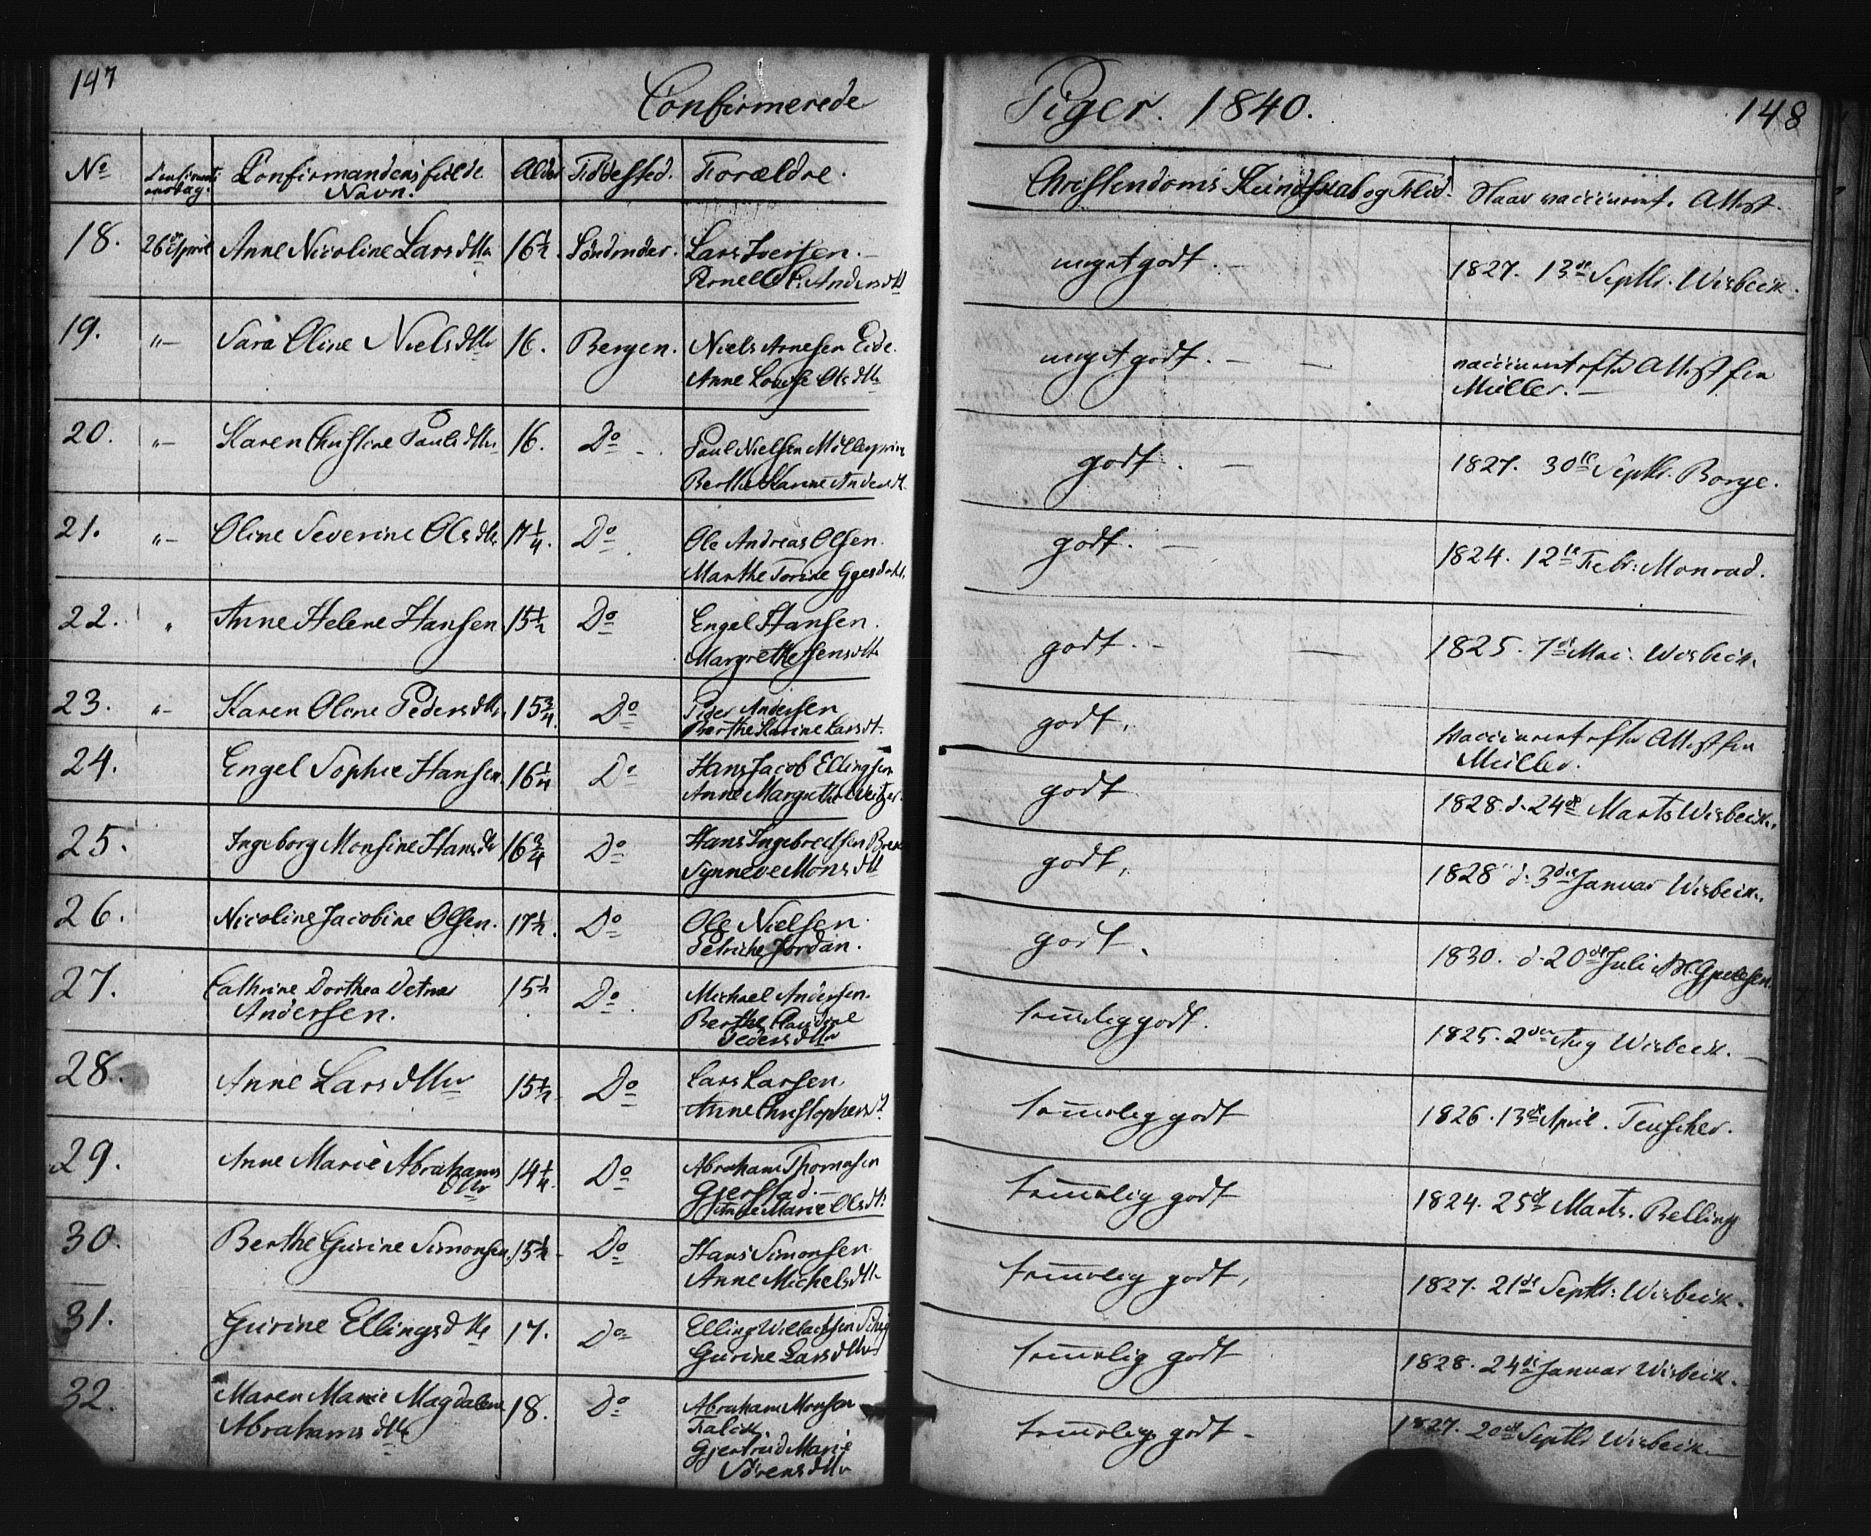 147
Confirmerede
Piger. 1840.
148
No
Confirmandens fulde
Navn.
Alder
Fødested.
Forældre.
Christendoms Kundskab og Flid.
Naar vaccineret. Attest.
18. 26de April Anne Nicoline Larsdttr 16½ Lars Iversen.
meget godt. 1827. 13de Septbr. Wisbech.
19. "— Sara Oline Nielsdttr 16. Bergen. Niels Arnesen Eide.
Anne Louise Olsdttr
meget godt. — — vaccineret efter Attest fra
Müller. —
20. "— Karen Christine Paulsdttr 16. Do Paul Nielsen
Berthe Karine Andersdt.
godt. — 1827. 30te Septbr. Borge.
21. "— Oline Severine Olsdttr. 17¼. Do Ole Andreas Olsen.
Marthe Torine
godt. — 1824. 12te Febr: Monrad.
22. " Anne Helene Hansen 15½ Do Engel Hansen.
Margrethe Jensdttr
godt. — — 1825. 7de Mai. Wisbech.
23. "— Karen Oline Pedersdttr. 15¾. Do Peder Andersen
Berthe Karine Larsdt.
godt. vaccineret efter Attest fra
Müller.
24. Engel Sophie Hansen. 16¼ Do Hans Jacob Ellingsen
Anne Margrethe
godt 1828. d. 24de Marts Wisbech.
25. Ingeborg Monsine Hansdtr 16¾ Do Hans Ingebretsen
Synneve Monsdtt
godt, 1828 d. 3die Januar Wisbech.
26. Nicoline Jacobine Olsen. 17½. Do Ole Nielsen.
Petricke Jordan.
godt. 1830. d. 20de Juli
27. Cathrine Dorthea
Andersen. 15½ Do. Michael Andersen.
Berthe
Pedersdttr
temelig godt. 1825. 2den Aug Wisbech. —
28. Anne Larsdttr 15½ Do Lars Larsen,
Anne Christophersdt
temelig godt 1826. 13de April. Teuscher.
29. Anne Marie Abrahams
dttr 14¼. Do Abraham Thomasen
Gjerstad. —
Marie Olsdtr.
temelig godt 1824. 25de Marts. Belling
30. Berthe Gurine Simonsen. 15½ Do Hans Simonsen.
Anne Michelsdttr
temelig godt, 1827. 21de Septbr: Wisbech.
31. Gurine Ellingsdttr 17. Do Elling
Gurine Larsdttr
temelig godt 1828. 24de Januar Wisbech.
32. Maren Marie Magdalene
Abrahamsdttr 18. Do Abraham Monsen
Gjertrud Marie
Sørensdttr
temelig godt — 1827. 20de Septbr Wisbech. —